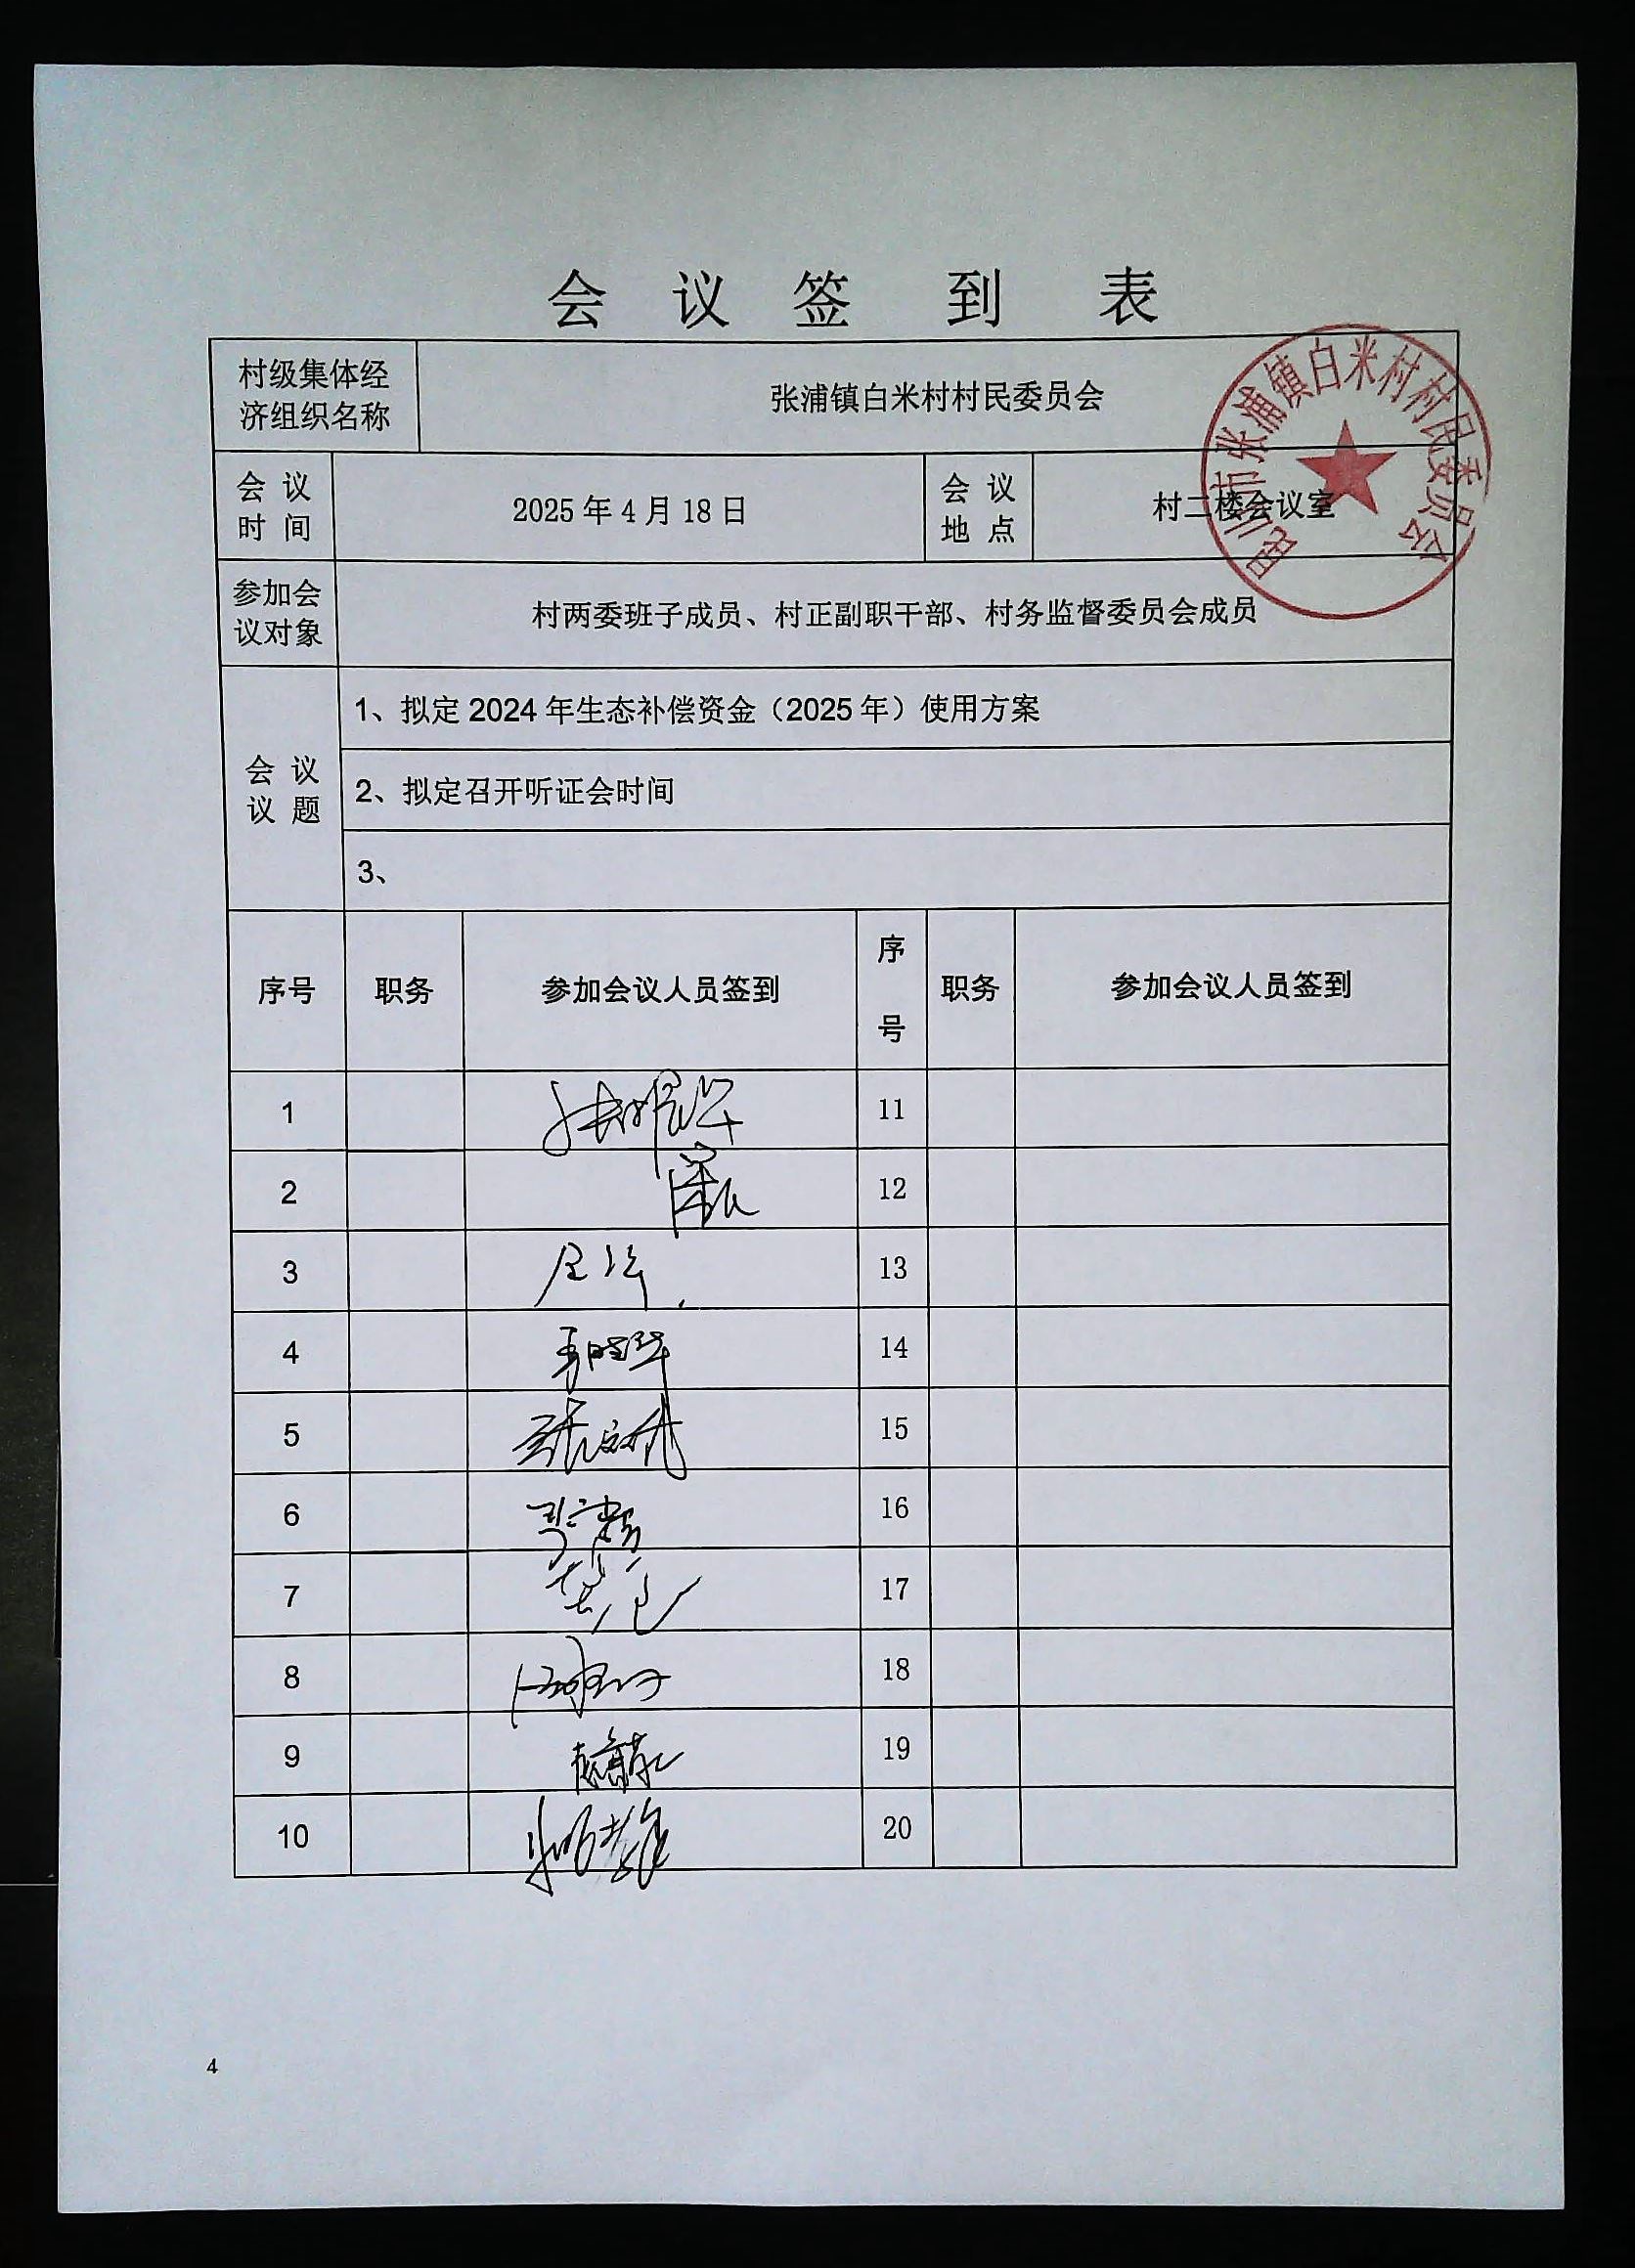 会 议 签 到 表
村级集体经
济组织名称
张浦镇白米村村民委员会
昆山市张浦镇白米村村民委员会
会 议
时 间
2025 年 4 月 18 日
会 议
地 点
村二楼会议室
参加会
议对象
村两委班子成员、村正副职干部、村务监督委员会成员
会 议
议 题
1、拟定 2024 年生态补偿资金（2025 年）使用方案
2、拟定召开听证会时间
3、
序号 职务 参加会议人员签到 序号 职务 参加会议人员签到
1 11
2 12
3 13
4 14
5 15
6 16
7 17
8 18
9 19
10 20
4